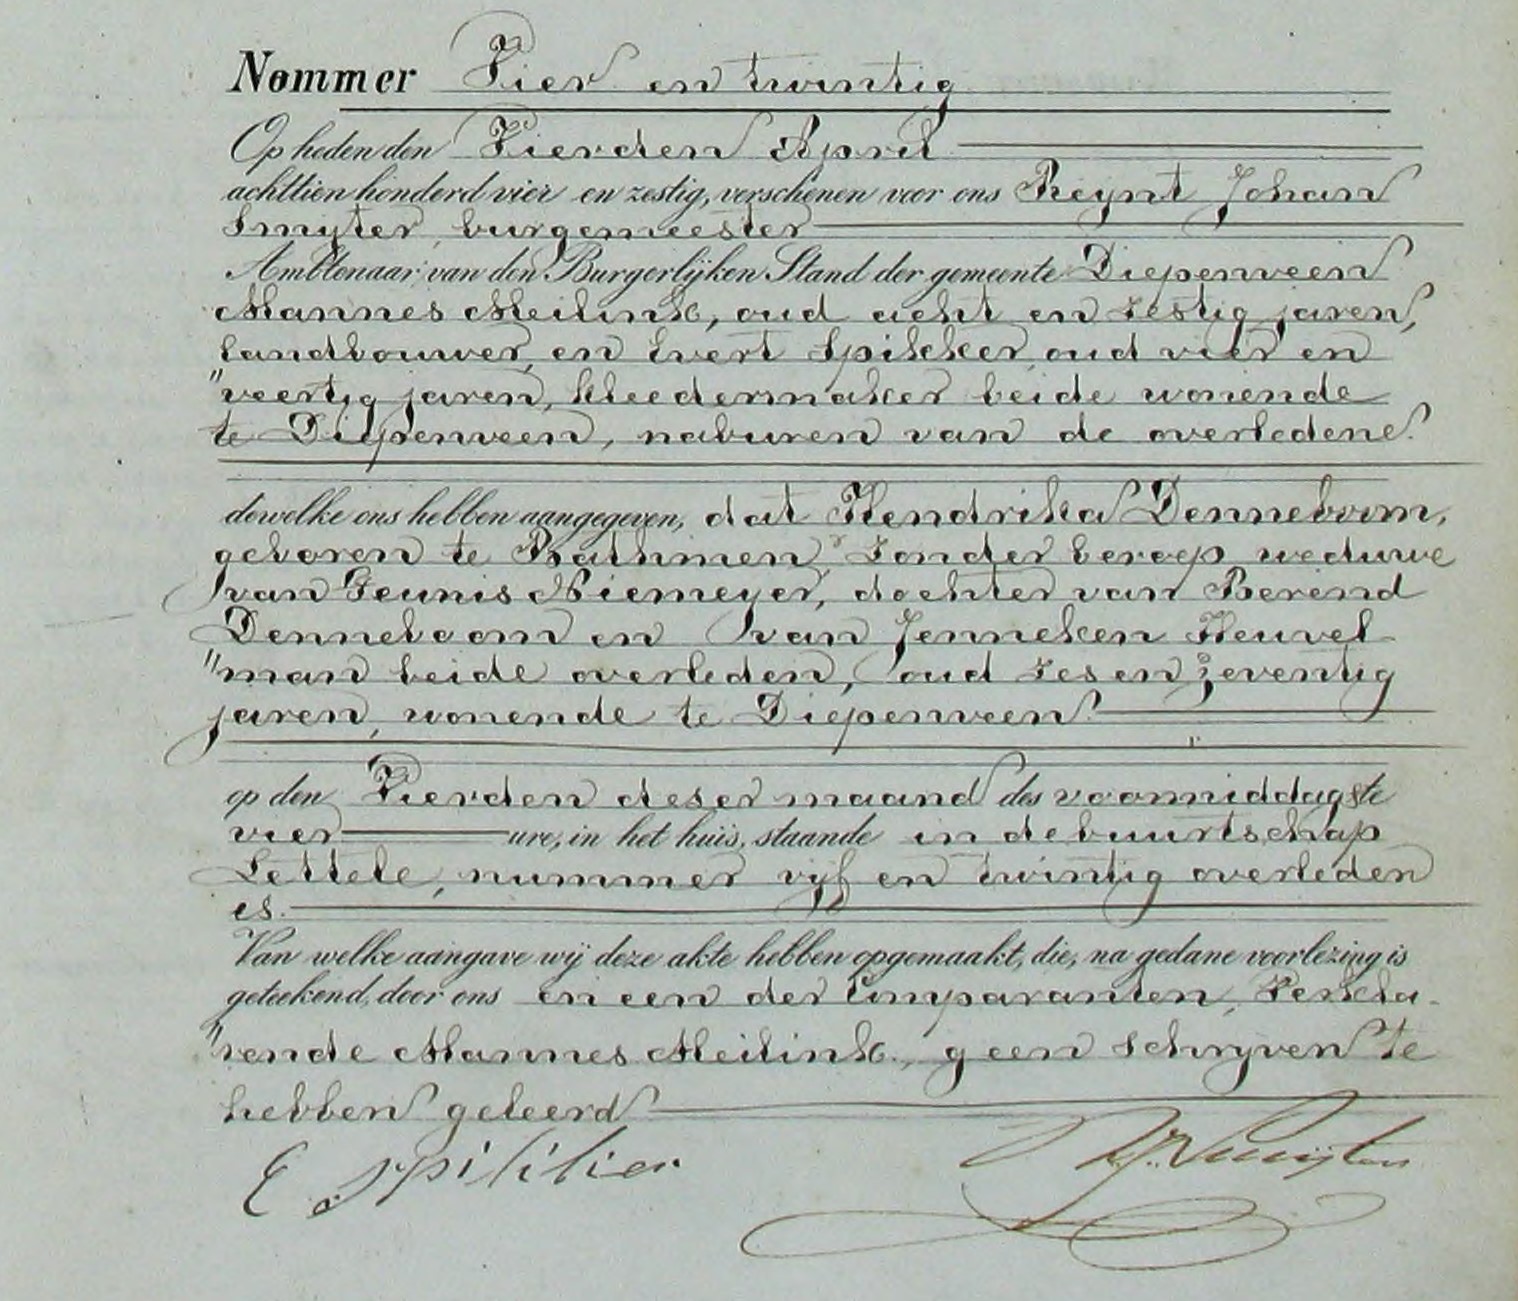 Nommer Vier en twintig
Op heden den Vierden April
achttien honderd vier en zestig, verschenen voor ons Reynt Johan
Smijter, burgemeester
Ambtenaar van den Burgerlijken Stand der gemeente Diepenveen
Mannes Meilink, oud acht en zestig jaren,
landbouwer, en Evert Spikker, oud vier en
"veertig jaren, kleedermaker beide wonende
te Diepenveen, naburen van de overledene.
dewelke ons hebben aangegeven, dat Hendrika Denneboom,
geboren te Bathmen, zonder beroep weduwe
van Teunis Niemeyer, dochter van Berend
Denneboom en van Jenneken Heuvel-
"man beide overleden, oud zes en zeventig
jaren, wonende te Diepenveen.
op den Vierden deser maand des voormiddags te
vier ure, in het huis, staande in de buurtschap
Lettele, nummer vijf en twintig overleden
is.
Van welke aangave wij deze akte hebben opgemaakt, die, na gedane voorlezing is
geteekend, door ons en een der Comparanten, Verkla-
"rende Mannes Meilink, geen schrijven te
hebben geleerd
E Spikker RJ Smijter